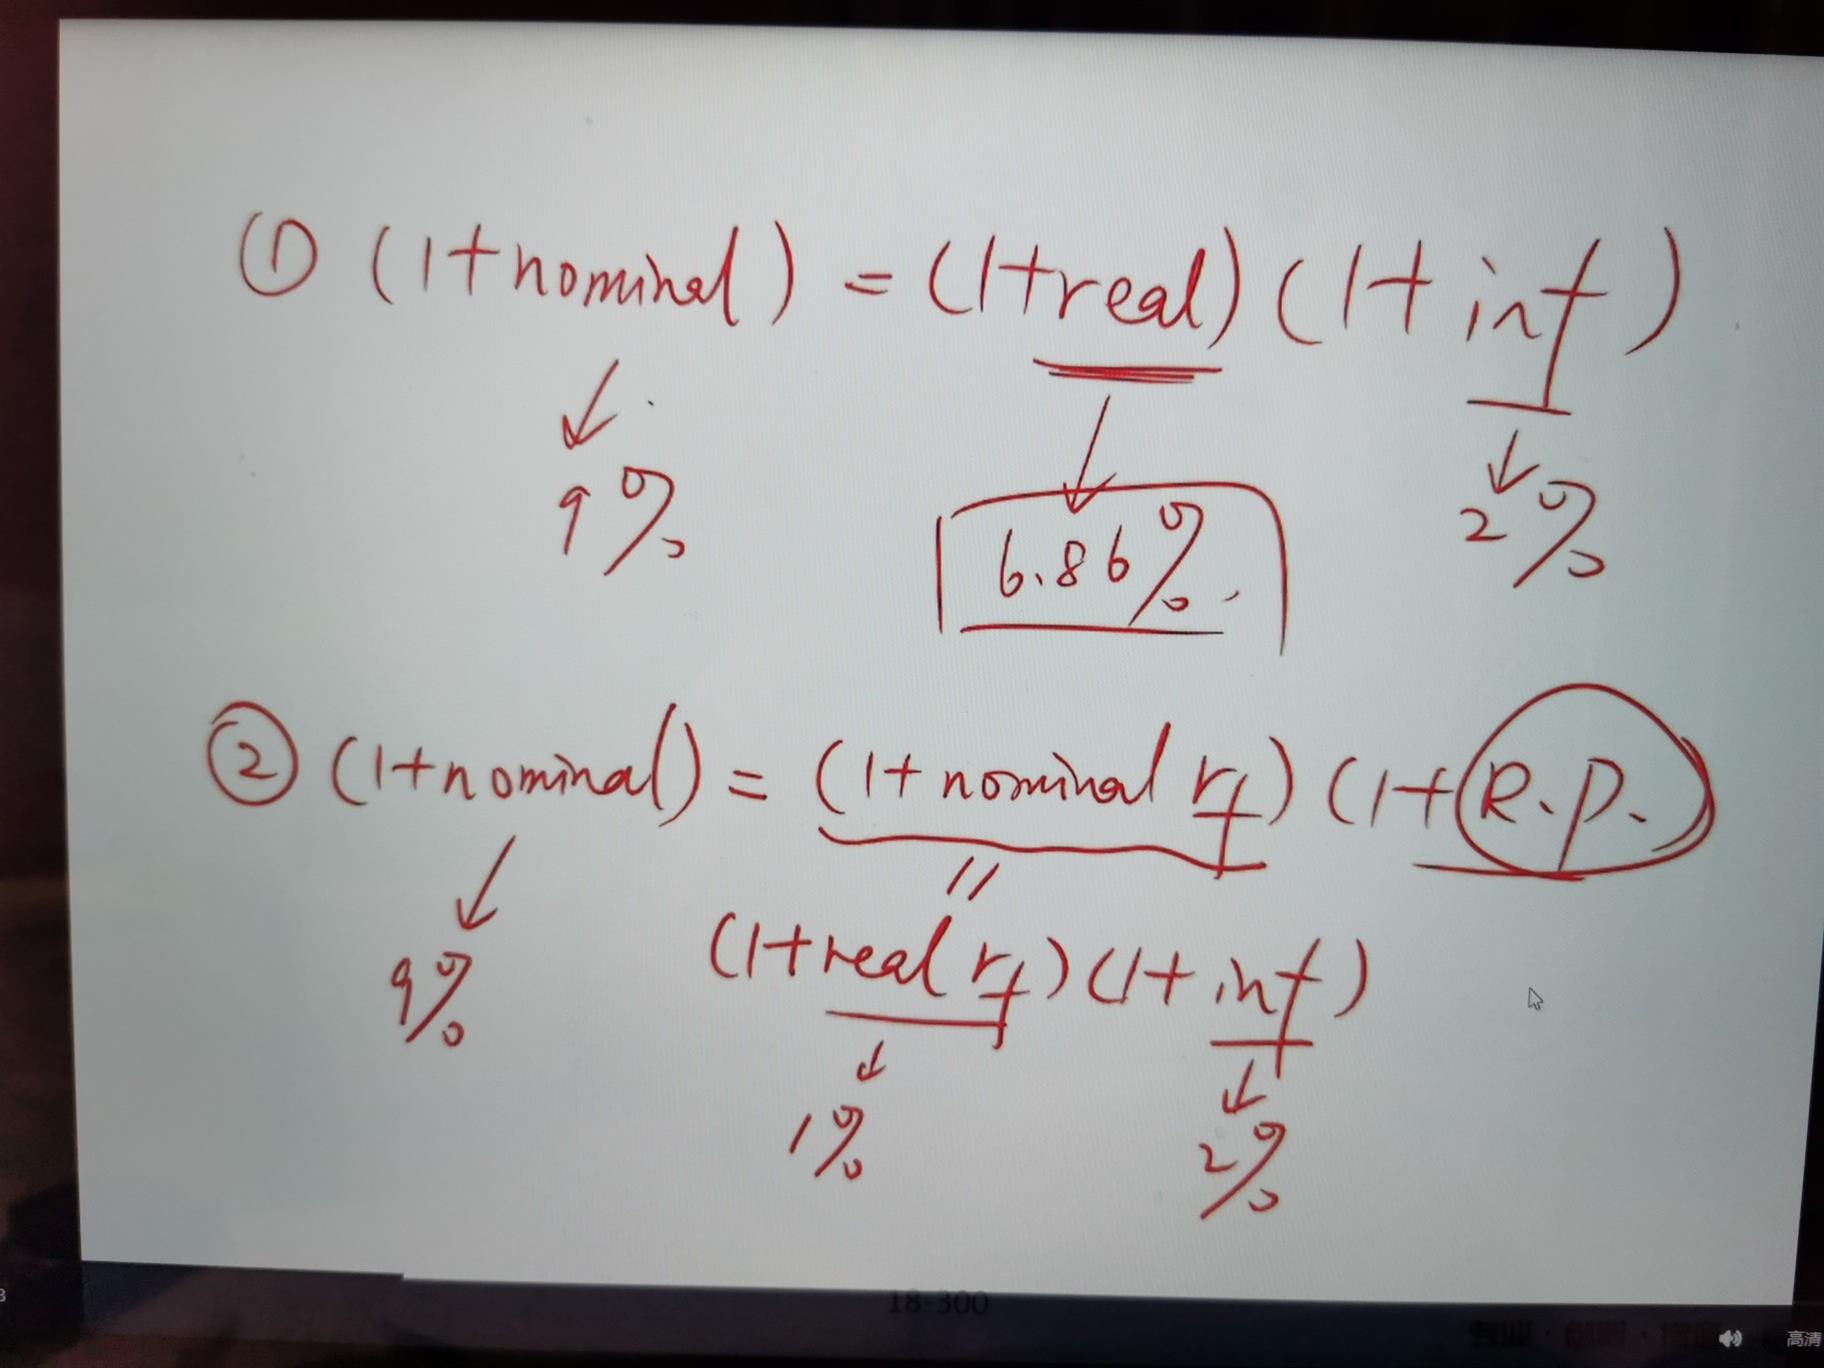 ① (1+nominal) = (1+real) (1+ inf)
9% 6.86%. 2%
② (1+nominal) = (1+ nominal rf) (1+ R.P.
=
9% (1+real rf) (1+ inf)
1% 2%
18-300
高清